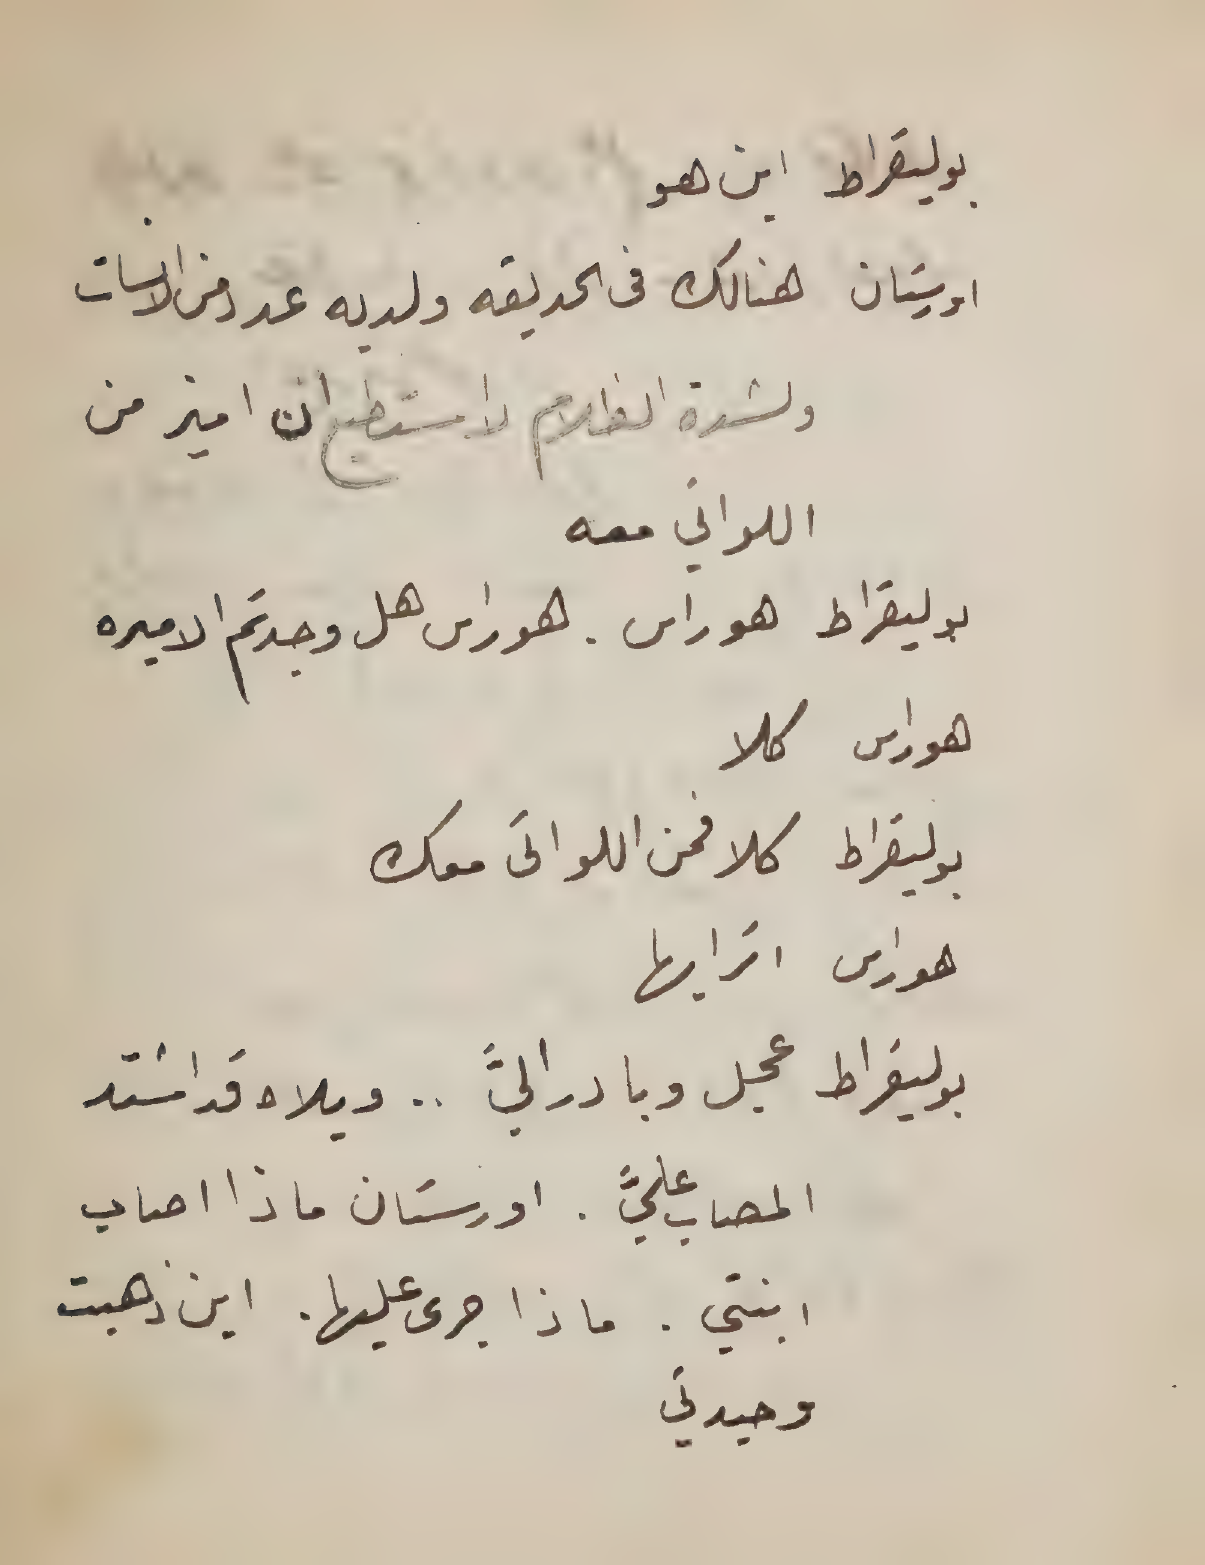 بوليقراط اين هو
اورستان هنالك فى الحديقه ولديه عدد من الانسات
ولشدة الظلام لا استطيع ان اميز من
اللواتي معه
بوليقراط هوراس . هوراس هل وجدتم الاميره
هوراس كلا
بوليقراط كلا فمن اللواتى معك
هوراس اترابها
بوليقراط عجل وبادر اليَّ .. ويلاه قد اشتد
المصاب عليَّ . اورستان ماذا اصاب
ابنتي . ماذا جرى عليها . اين ذهبت
وحيدتي